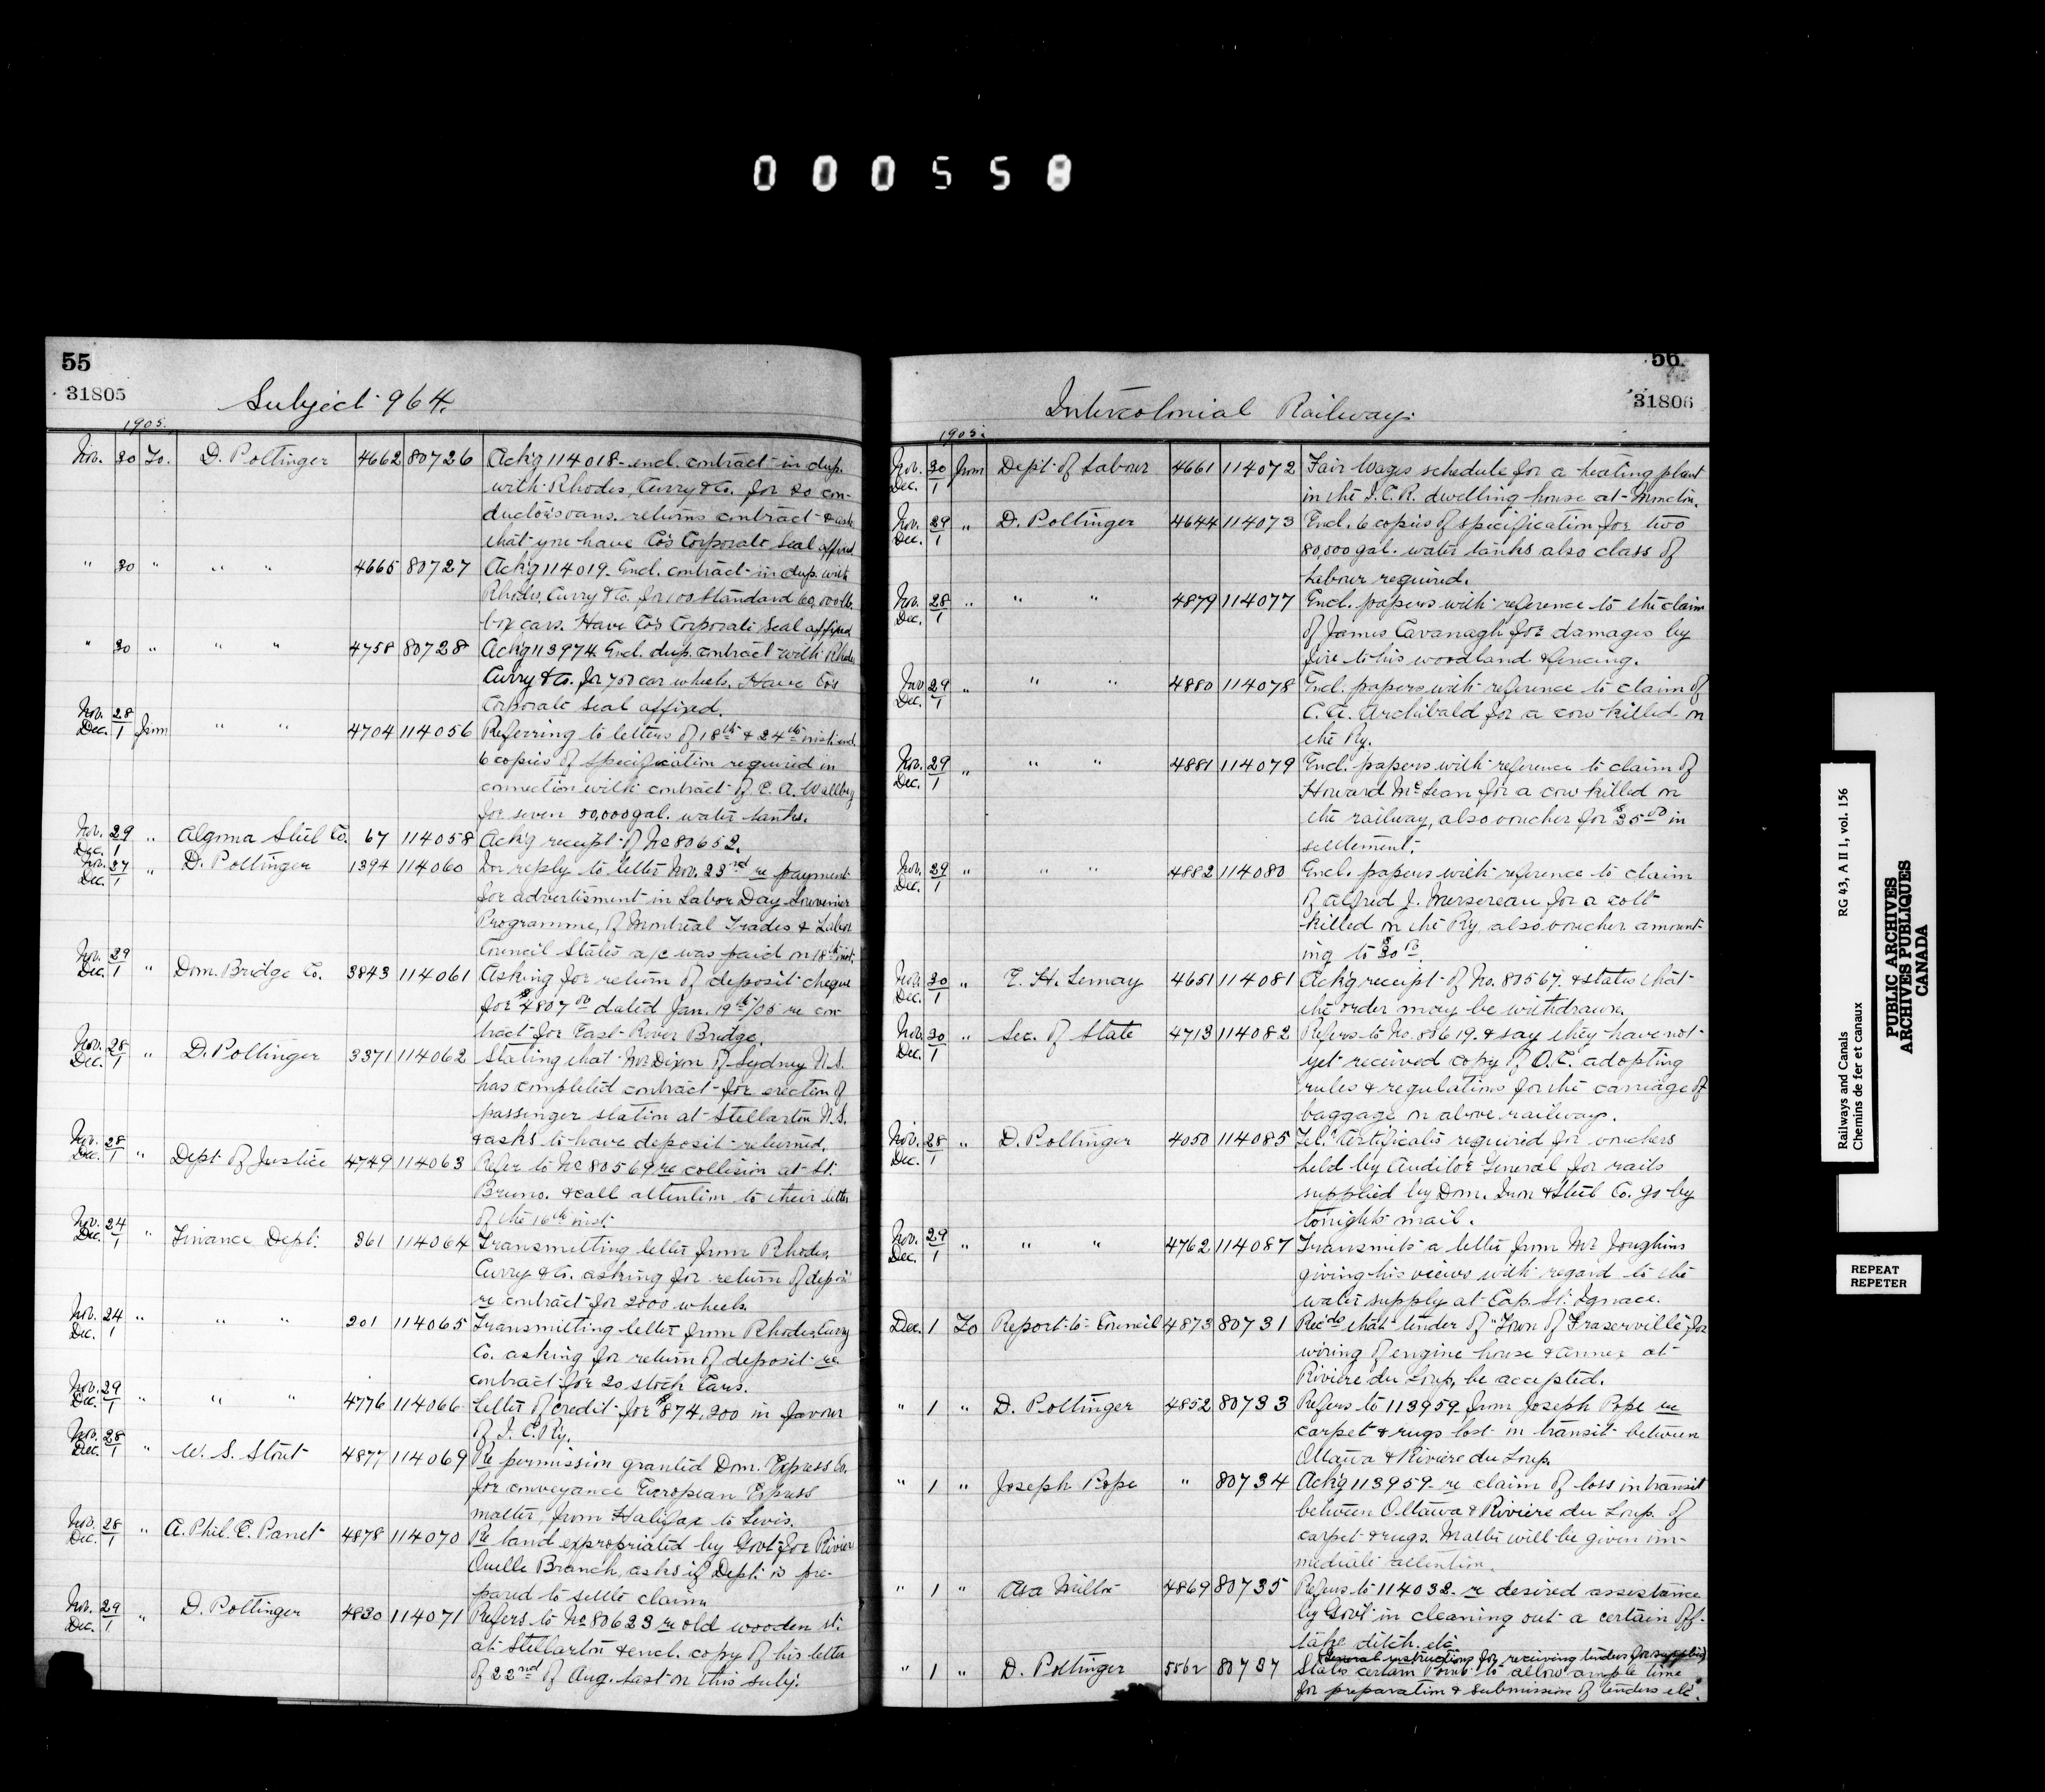 000558
55
31805
Subject 964.
1905.
Nov. 30 To. D. Pottinger 4662 80726 Ack'g 114018 - encl. contract in dup.
with Rhodes, Curry & Co. for 20 con-
ductors vans. returns contract & ask
that you have Co's Corporate Seal affixed
" 30 " " " 4665 80727 Ack'g 114019. Encl. contract in dup. with
Rhodes, Curry & Co. for 100 Standard 60,000 lb.
box cars. Have Co's Corporate Seal affixed
" 30 " " " 4758 80728 Ack'g 113974. Encl. dup. contract with Rhodes
Curry & Co. for 750 car wheels. Have Co's
Corporate Seal affixed.
Nov. 28 Dec. 1 from " " 4704 114056 Referring to letters of 18th & 24th inst. encl.
6 copies of specification required in
connection with contract of E. A. Wallberg
for seven 50,000 gal. water tanks.
Nov. 29 Dec. 1 " Algoma Steel Co. 67 114058 Ack'g receipt of No 80652.
Nov. 27 Dec. 1 " D. Pottinger 1394 114060 In reply to letter Nov. 23rd re payment
for advertisment in Labor Day Souvenier
Programme, of Montreal Trades & Labor
Council States a/c was paid on 18th inst.
Nov. 29 Dec. 1 " Dom. Bridge Co. 3843 114061 Asking for return of deposit cheque
for $4807.00 dated Jan. 19th/05 re con-
tract for East River Bridge.
Nov. 28 Dec. 1 " D. Pottinger 3371 114062 Stating that Mr Dixon of Sydney N.S.
has completed contract for erection of
passenger station at Stellarton N.S.
& asks to have deposit returned.
Nov. 28 Dec. 1 " Dept. of Justice 4749 114063 Refer to No 80569 re collision at St.
Bruno. & call attention to their letter
of the 16th inst.
Nov. 24 Dec. 1 " Finance Dept. 361 114064 Transmitting letter from Rhodes,
Curry & Co. asking for return of deposit
re contract for 2000 wheels.
Nov. 24 Dec. 1 " " " 201 114065 Transmitting letter from Rhodes, Curry
Co. asking for return of deposit re
contract for 20 stock Cars.
Nov. 29 Dec. 1 " " " 4776 114066 Letter of credit for $874,200 in favour
of I. C. Ry.
Nov. 28 Dec. 1 " W. S. Stout 4877 114069 Re permission granted Dom. Express Co.
for conveyance European Express
matter, from Halifax to Levis.
Nov. 28 Dec. 1 " A. Phil. E. Panet 4878 114070 Re land expropriated by Govt. for Rivier
Ouelle Branch, asks if Dept. is pre-
pared to settle claim.
Nov. 29 Dec. 1 " D. Pottinger 4830 114071 Refers to No 80623 re old wooden st.
at Stellarton & encl. copy of his letter
of 22nd of Aug. last on this subj.
56
31806
Intercolonial Railway.
1905.
Nov. 30 Dec. 1 from Dept. of Labour 4661 114072 Fair Wages schedule for a heating plant
in the I.C.R. dwelling house at Moncton.
Nov. 29 Dec. 1 " D. Pottinger 4644 114073 Encl. 6 copies of specification for two
80,000 gal. water tanks also class of
Labour required.
Nov. 28 Dec. 1 " " " 4879 114077 Encl. papers with reference to the claim
of James Cavanagh for damages by
fire to his woodland & fencing.
Nov 29 Dec. 1 " " " 4880 114078 Encl. papers with reference to claim of
C. A. Archibald for a cow killed on
the Ry.
Nov. 29 Dec. 1 " " " 4881 114079 Encl. papers with reference to claim of
Howard McLean for a cow killed on
the railway, also voucher for $35.00 in
settlement.
Nov. 29 Dec. 1 " " " 4882 114080 Encl. papers with reference to claim
of Alfred J. Mersereau for a colt
killed on the Ry. also voucher amount-
ing to $30.00.
Nov. 30 Dec. 1 " E. H. Lemay 4651 114081 Ack'g receipt of No. 80567. & states that
the order may be withdrawn.
Nov. 30 Dec. 1 " Sec. of State 4713 114082 Refers to No. 80619. & say they have not
yet received copy of O.C. adopting
rules & regulations for the carriage of
baggage on above railway.
Nov. 28 Dec. 1 " D. Pottinger 4050 114085 Tel. Certificates required for vouchers
held by Auditor General for rails
supplied by Dom. Iron & Steel Co. go by
tonights mail.
Nov. 29 Dec. 1 " " " 4762 114087 Transmits a letter from Mr Joughins
giving his views with regard to the
water supply at Cap. St. Ignace.
Dec. 1 To Report to Council 4873 80731 Rec'ds that tender of "Town of Fraserville" for
wiring of engine house & annex at
Riviere du Loup, be accepted.
" 1 " D. Pottinger 4852 80733 Refers to 113959 from Joseph Pope re
carpet & rugs lost in transit between
Ottawa & Riviere du Loup.
" 1 " Joseph Pope " 80734 Ack'g 113959 re claim of loss in transit
between Ottawa & Riviere du Loup of
carpet & rugs. Matter will be given im-
mediate attention.
" 1 " Asa Milton 4869 80735 Refers to 114032. re desired assistance
by Gov't in cleaning out a certain off-
take ditch. etc.
General instructions for receiving tenders for supplies
" 1 " D. Pottinger 5562 80737 States certain to allow ample time
for preparation & submission of tenders etc.
Railways and Canals RG 43, A II 1, vol. 156
Chemins de fer et canaux
PUBLIC ARCHIVES
ARCHIVES PUBLIQUES
CANADA
REPEAT
REPETER